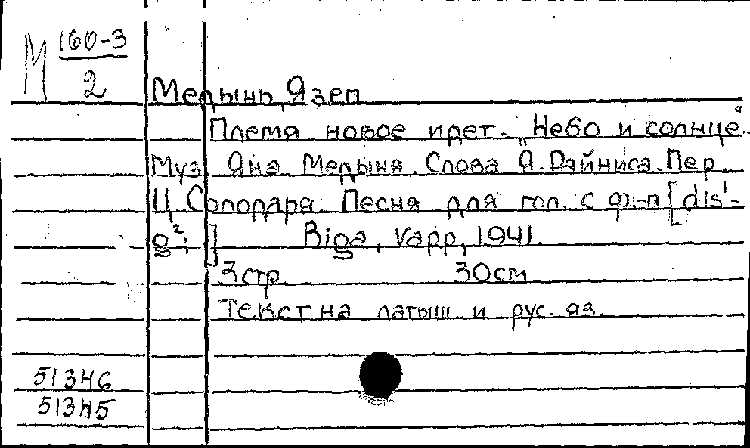 М 160-3
2
Медынь, Язеп
Племя новое идет. „Небо и солнце".
Муз. Яна Медыня. Слова Я. Райниса. Пер.
Ц. Солодаря. Песня для гол. с ф-п [dis¹-
g²;] Riga, Vapp, 1941.
3 стр. 30 см
Текст на латыш. и рус. яз.
51346
51345